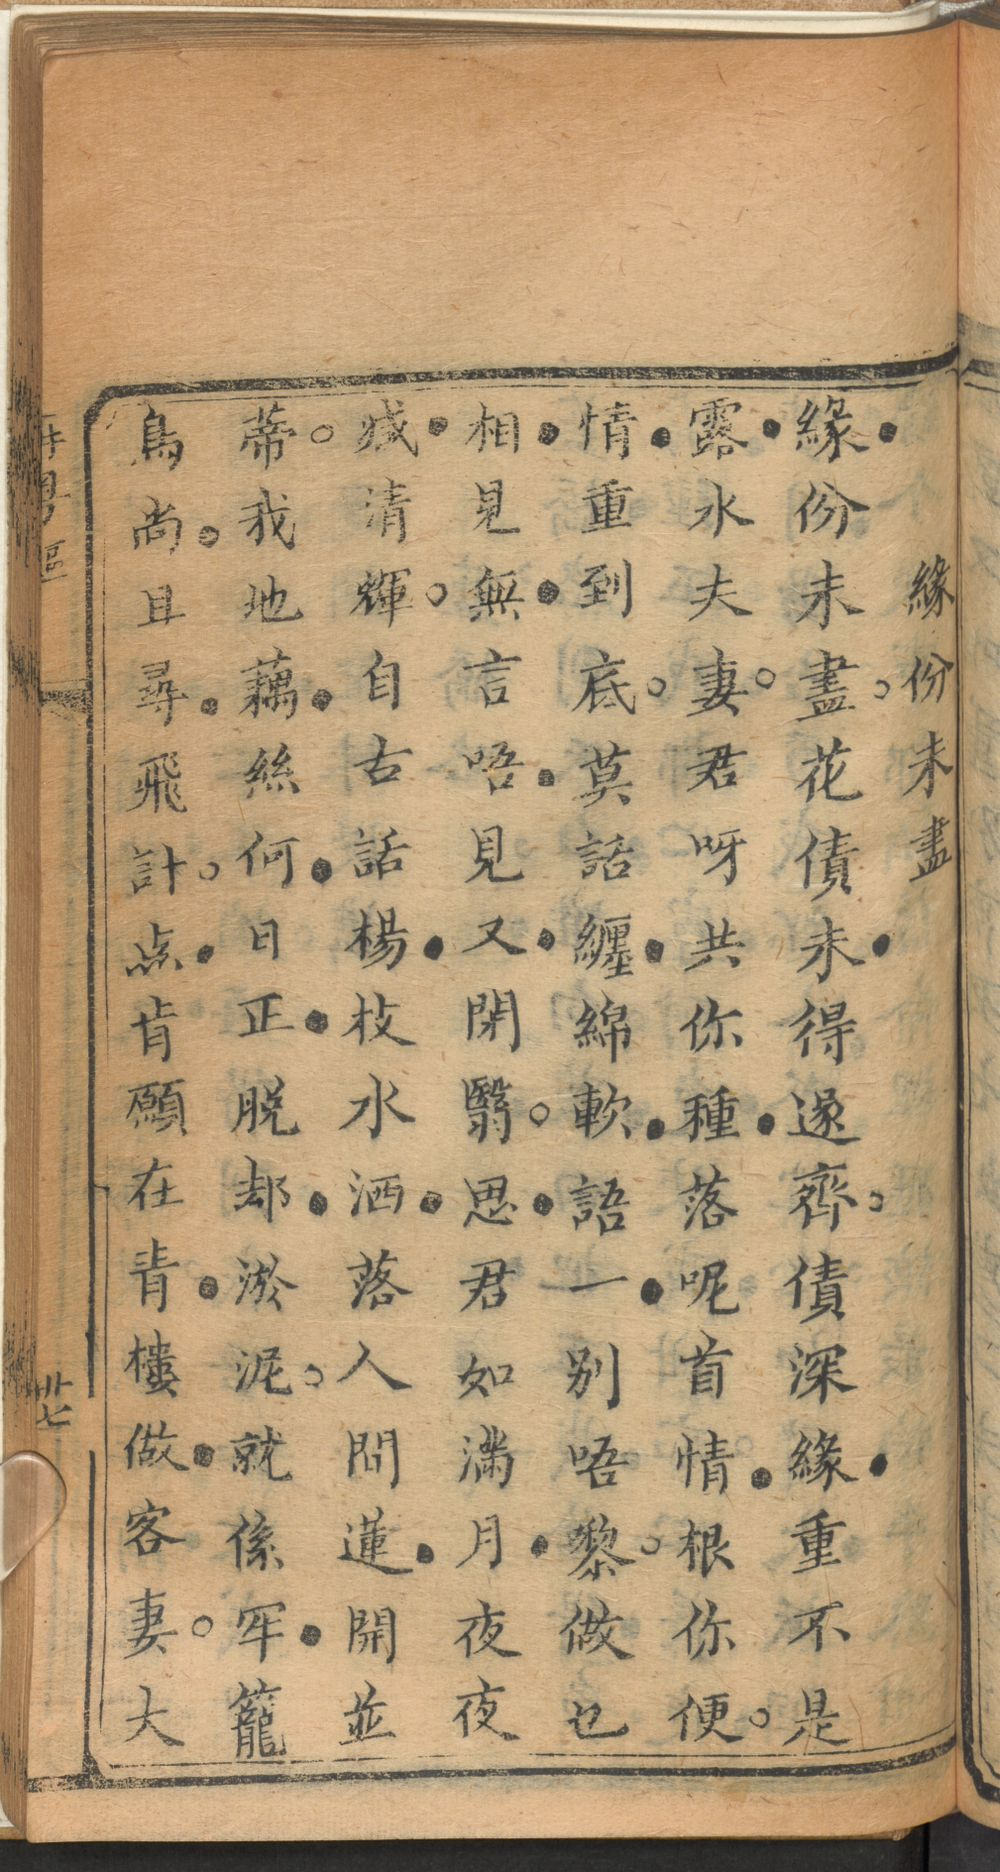 緣份未盡
緣份未盡花債未得還齊債深緣重不是
露水夫妻君呀共你種落呢首情根你便
情重到底莫話纏綿軟語一別唔黎做乜
相見無言唔見又閉翳思君如滿月夜夜
減清輝自古話楊枝水洒落人間蓮開並
蒂我地藕絲何日正脫却淤泥就係牢籠
鳥尚且尋飛計点肯願在青樓做客妻大
廿七